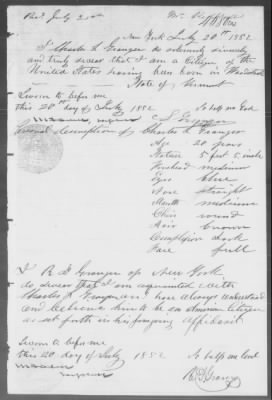 Recd July 21st
New York July 20th 1852
I Charles S. Granger do solemnly sincerely
and truly swear that I am a Citizen of the
United States having been born in Woodstock
State of Vermont
Sworn to before me
this 20th day of July 1852 So help me God
C S Granger
personal description of Charles S. Granger
Age 20 years
Stature 5 feet 5 inches
Forehead medium
Eyes blue
Nose straight
Mouth medium
Chin round
Hair brown
Complexion dark
Face full
I R D Granger of New York
do swear that I am acquainted with
Charles S Granger have always understood
and believe him to be an American Citizen
as set forth in his foregoing Affidavit
Sworn to before me
this 20 day of July 1852 So help me God
R D Granger